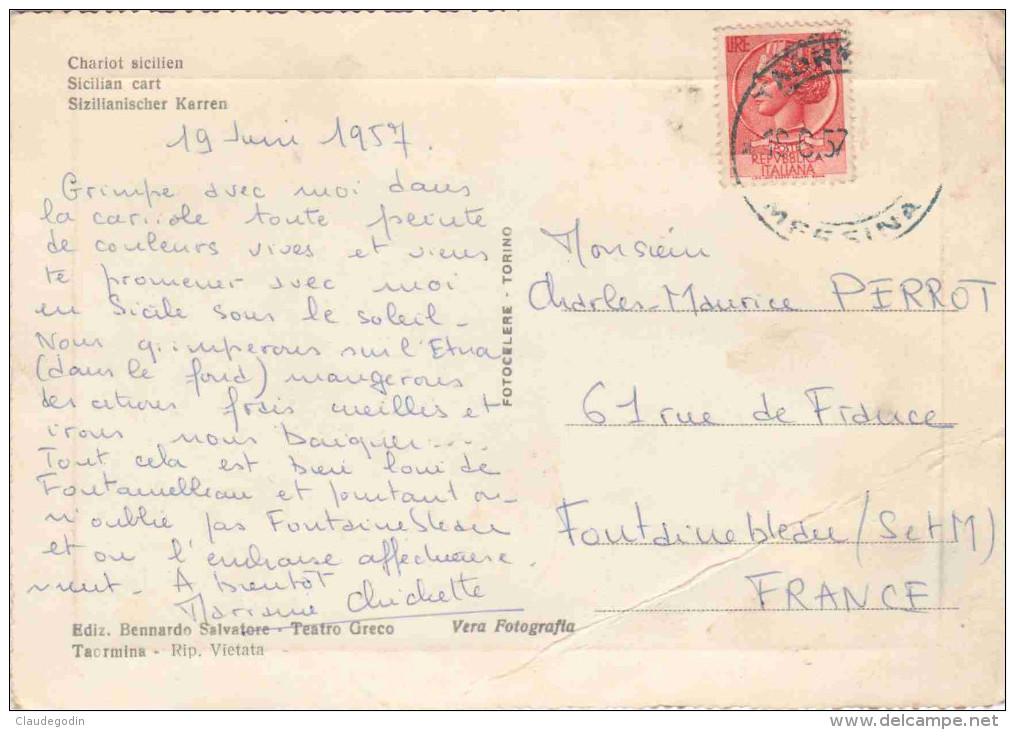 Chariot sicilien
Sicilian cart
Sizilianischer Karren
19 Juin 1957.
Grimpe avec moi dans
la carriole toute peinte
de couleurs vives et viens
te promener avec moi
en Sicile sous le soleil -
Nous grimperons sur l'Etna
(dans le fond) mangerons
des citrons frais cueillis et
irons nous baigner....
Tout cela est bien loin de
Fontainebleau et pourtant on
n'oublie pas Fontainebleau
et on l'embrasse affectueuse
ment. A bientôt
Marraine Chichette
Ediz. Bennardo Salvatore - Teatro Greco
Taormina - Rip. Vietata
Vera Fotografia
FOTOCELERE - TORINO
LIRE
REPUBBLICA
ITALIANA
57
MESSINA
Monsieur
Charles-Maurice PERROT
61 rue de France
Fontainebleau (S et M)
FRANCE
Claudegodin
www.delcampe.net